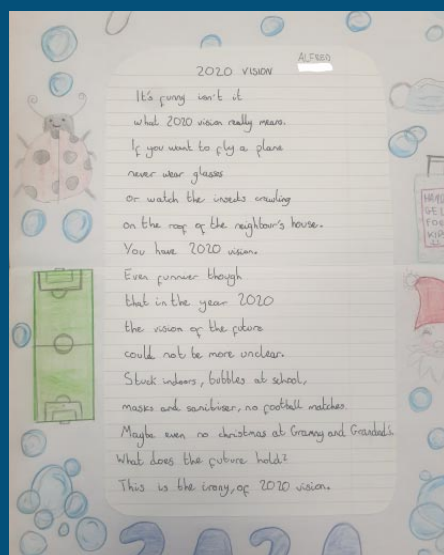 ALFRED
2020 VISION
It's funny isn't it
what 2020 vision really means.
If you want to fly a plane
never wear glasses
or watch the insects crawling
on the roof of the neighbour's house.
You have 2020 vision.
Even funnier though
that in the year 2020
the vision of the future
could not be more unclear.
Stuck indoors, bubbles at school,
masks and sanitiser, no football matches.
Maybe even no christmas at Granny and Grandad's.
What does the future hold?
This is the irony, of 2020 vision.
HAND
GEL
FOR
KIDS
2020